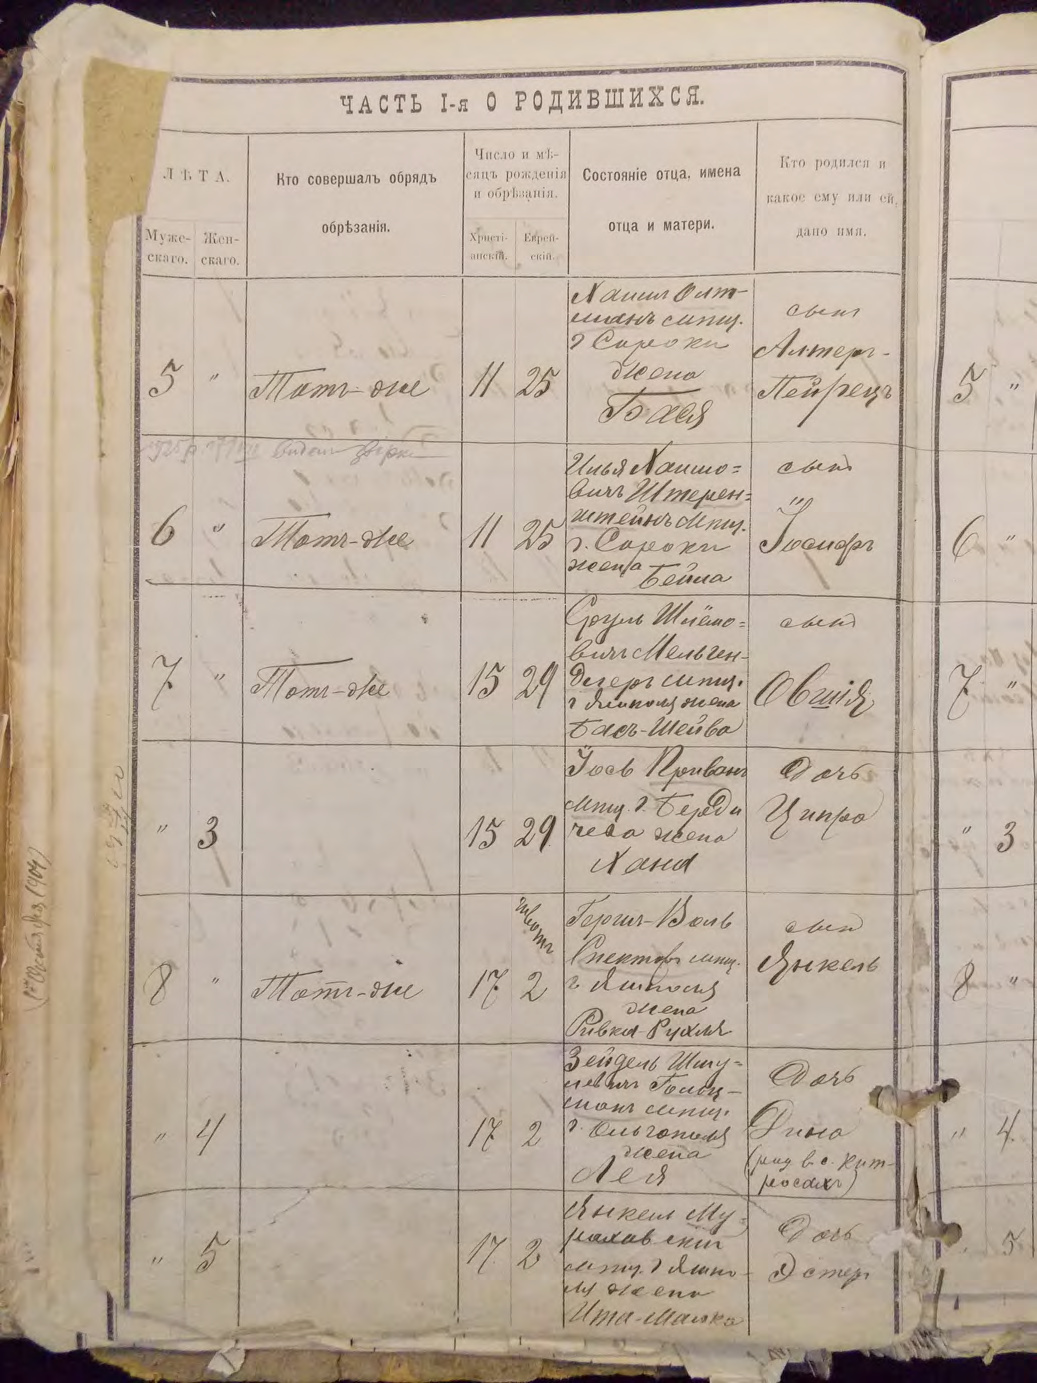 ЧАСТЬ I-я О РОДИВШИХСЯ.
ЛѢТА.
Муже-
скаго.
Жен-
скаго.
Кто совершалъ обрядъ
обрѣзанія.
Число и мѣ-
сяцъ рожденія
и обрѣзанія.
Христі-
анскій.
Еврей-
скій.
Состояніе отца, имена
отца и матери.
Кто родился и
какое ему или ей,
дано имя.
5 " Тотъ-же 11 25
Хаимъ Олт-
манъ мѣщ.
г Сороки
жена
Бася
сынъ
Алтеръ-
Пейрецъ
5 "
6 " Тотъ-же 11 25
Илья Хаимо=
вичъ Штерен=
штейнъ мѣщ.
г. Сороки
жена
Бейла
сынъ
"
Іосифъ
6 "
7 " Тотъ-же 15 29
Сруль Шлёмо=
вичъ
мѣщ.
г Ямполя жена
Бася-Шейва
сынъ
Овшія
7 "
" 3 15 29
Іось
мѣщ. г. Берди
чева жена
Хана
Дочь
Ципра
" 3
8 " Тотъ-же 17 2
Гершъ-Волъ
Спекторъ мѣщ.
г Ямполя
жена
Ривка-Рухля
сынъ
Янкель
8 "
" 4 17 2
Зейдель Шму=
левичъ Гольц-
манъ мѣщ.
г. Ольгополя
жена
Лея
Дочь
Дина
(рид в с. Кит-
росахъ)
" 4
" 5 17 2
Янкель Му=
раховскій
мѣщ. г Ямпо-
ля жена
Ита-Малка
Дочь
Эстеръ
5